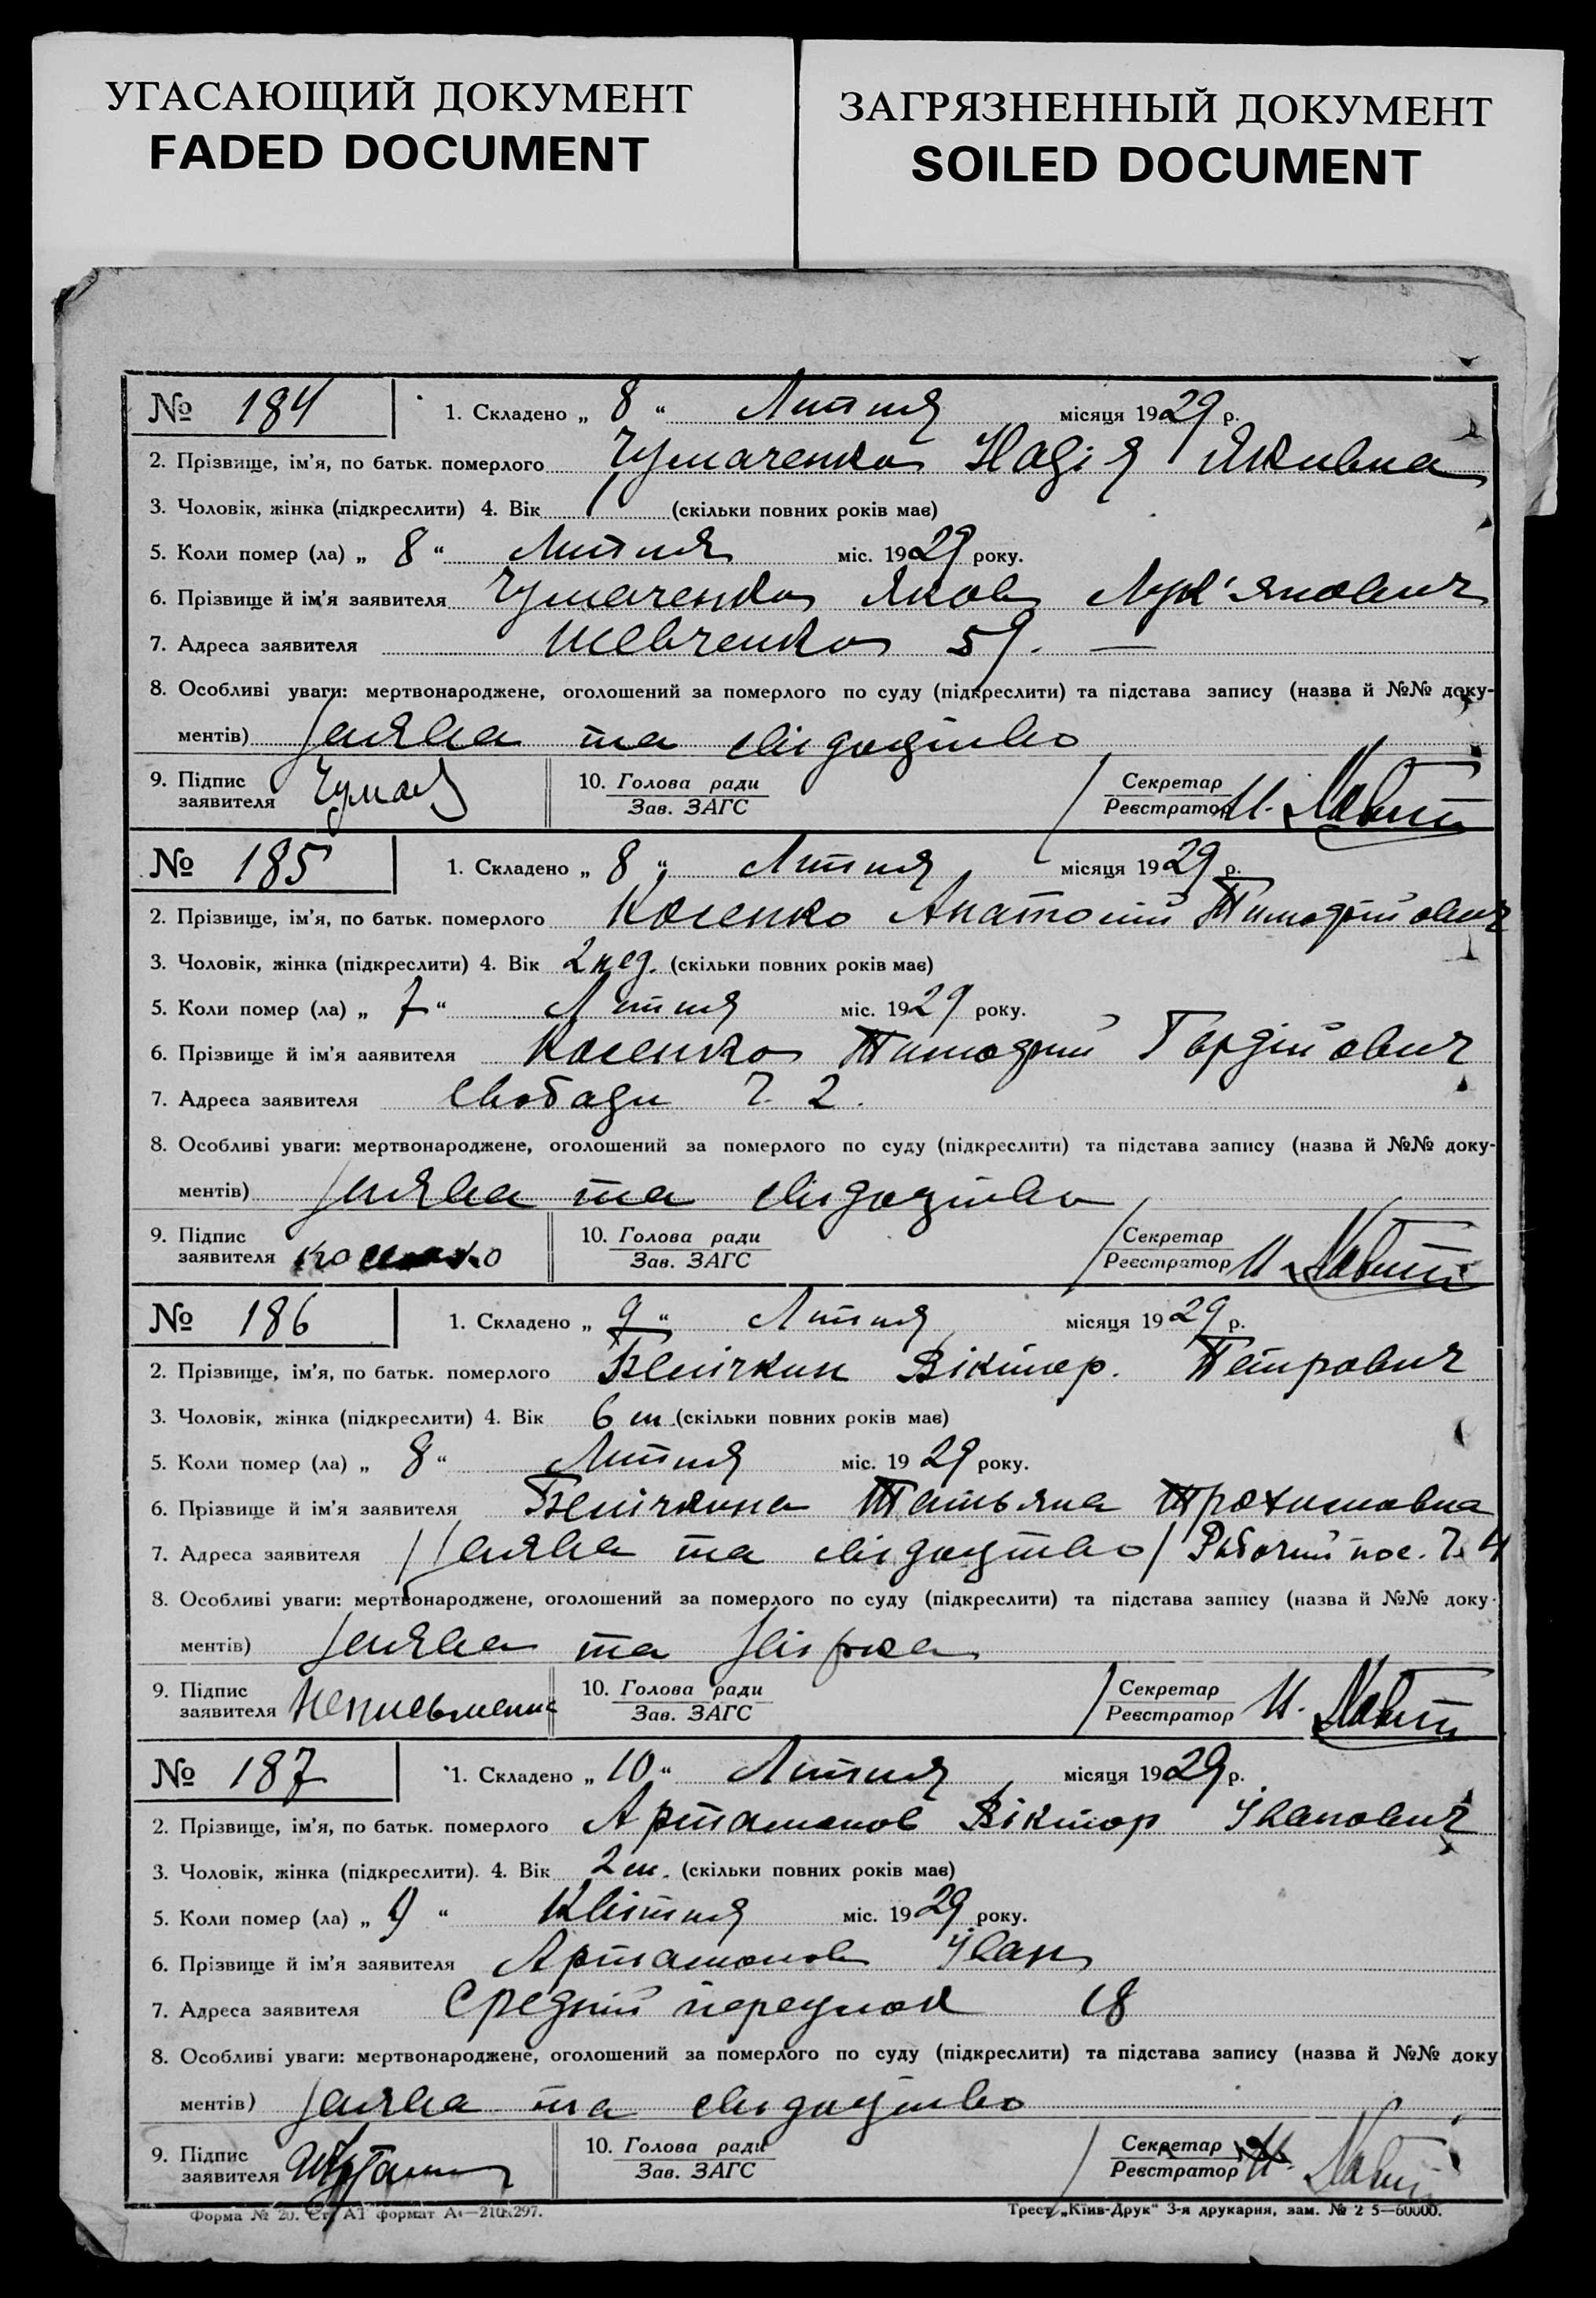 УГАСАЮЩИЙ ДОКУМЕНТ
FADED DOCUMENT
ЗАГРЯЗНЕННЫЙ ДОКУМЕНТ
SOILED DOCUMENT
№ 184 1. Складено „ 8 “ Липня місяця 1929 р.
2. Прізвище, ім’я, по батьк. померлого Чумаченко Надія Яківна
3. Чоловік, жінка (підкреслити) 4. Вік 1 (скільки повних років має)
5. Коли помер (ла) „ 8 “ Липня міс. 1929 року.
6. Прізвище й ім’я заявителя Чумаченко Яков Лук’янович
7. Адреса заявителя Шевченко 59. —
8. Особливі уваги: мертвонароджене, оголошений за померлого по суду (підкреслити) та підстава запису (назва й №№ доку-
ментів) Заява та свідоцтво
9. Підпис заявителя Чумач 10. Голова ради Зав. ЗАГС Секретар Реєстратор
№ 185 1. Складено „ 8 “ Липня місяця 1929 р.
2. Прізвище, ім’я, по батьк. померлого Косенко Анатолій Тимофійович
3. Чоловік, жінка (підкреслити) 4. Вік 2 нед. (скільки повних років має)
5. Коли помер (ла) „ 7 “ Липня міс. 1929 року.
6. Прізвище й ім’я ааявителя Косенко Тимофій Гордійович
7. Адреса заявителя Свободи Ч. 2.
8. Особливі уваги: мертвонароджене, оголошений за померлого по суду (підкреслити) та підстава запису (назва й №№ доку-
ментів) Заява та свідоцтво
9. Підпис заявителя Косенко 10. Голова ради Зав. ЗАГС Секретар Реєстратор
№ 186 1. Складено „ 9 “ Липня місяця 1929 р.
2. Прізвище, ім’я, по батьк. померлого Белічкин Віктор. Петрович
3. Чоловік, жінка (підкреслити) 4. Вік 6 м. (скільки повних років має)
5. Коли помер (ла) „ 8 “ Липня міс. 1929 року.
6. Прізвище й ім’я заявителя Белічкина Татьяна Трохимовна
7. Адреса заявителя /Заява та свідоцтво/ Рабочий пос. Ч. 4
8. Особливі уваги: мертвонароджене, оголошений за померлого по суду (підкреслити) та підстава запису (назва й №№ доку-
ментів) Заява та
9. Підпис заявителя 10. Голова ради Зав. ЗАГС Секретар Реєстратор
№ 187 1. Складено „ 10 “ Липня місяця 1929 р.
2. Прізвище, ім’я, по батьк. померлого Артамонов Віктор Іванович
3. Чоловік, жінка (підкреслити). 4. Вік 2 м. (скільки повних років має)
5. Коли помер (ла) „ 9 “ Квітня міс. 1929 року.
6. Прізвище й ім’я заявителя Артамонов Іван
7. Адреса заявителя Средний переулок 18
8. Особливі уваги: мертвонароджене, оголошений за померлого по суду (підкреслити) та підстава запису (назва й №№ доку
ментів) Заява та свідоцтво
9. Підпис заявителя 10. Голова ради Зав. ЗАГС Секретар Реєстратор
Форма № 20. Ст. А1 формат А₄—210х297. Трест „Київ-Друк“ 3-я друкарня, зам. № 2 5—60000.